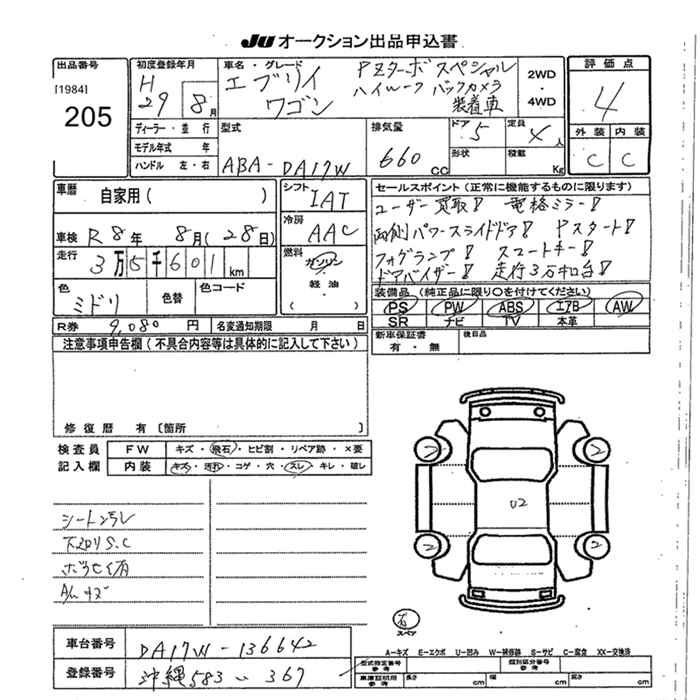 JU オークション出品申込書
出品番号
[1984]
205
初度登録年月
H 29 8月
車名・グレード
エブリイ ワゴン
PZターボスペシャル
ハイルーフ バックカメラ
装着車
2WD
・
4WD
評価点
4
外装 内装
C C
ディーラー・並行
モデル年式 年
ハンドル 左・右
型式
ABA-DA17W
排気量
660 CC
ドア 5
定員 4 人
形状
積載 Kg
車歴
自家用( )
車検 R8年 8月(28日)
走行 3万5千601km
色
ミドリ
色替
色コード
シフト
IAT
冷房
AAC
燃料
ガソリン
軽油
( )
セールスポイント(正常に機能するものに限ります)
ユーザー買取! 電格ミラー!
両側パワースライドドア! Pスタート!
フォグランプ! スマートキー!
ドアバイザー! 走行3万キロ台!
装備品(純正品に限り○を付けてください)
PS PW ABS エアB AW
SR ナビ TV 本革
R券 9,080円 名変通知期限 月 日
新車保証書
有・無
後日品
注意事項申告欄(不具合内容等は具体的に記入して下さい)
修復歴 有〔箇所 〕
検査員
記入欄
FW キズ・飛石・ヒビ割・リペア跡・×要
内装 キズ・汚れ・コゲ・穴・スレ・キレ・破レ
シート汚レ
下回りS.C
A/Wキズ
U2
2 2
2 2
スペア
A-キズ E-エクボ U-凹み W-補修跡 S-サビ C-腐食 XX-交換済
車台番号 DA17W-136642
登録番号 沖縄583 い 367
型式指定番号
参考
類別区分番号
参考
車庫証明用
参考
長さ cm
幅 cm
高さ cm